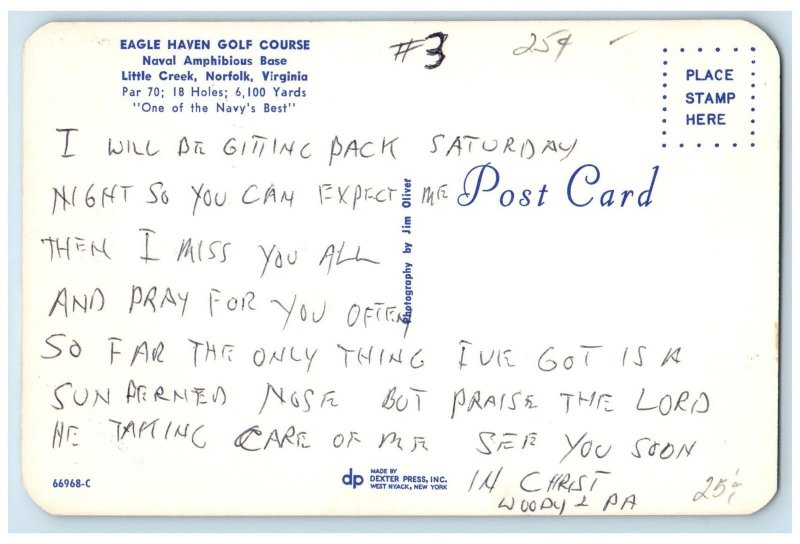 EAGLE HAVEN GOLF COURSE
Naval Amphibious Base
Little Creek, Norfolk, Virginia
Par 70; 18 Holes; 6,100 Yards
"One of the Navy's Best"
#3
25¢
PLACE
STAMP
HERE
Post Card
I WILL BE GITTING BACK SATURDAY
NIGHT SO YOU CAN EXPECT ME
THEN I MISS YOU ALL
AND PRAY FOR YOU OFTEN
SO FAR THE ONLY THING I'VE GOT IS A
SUN BERNED NOSE BUT PRAISE THE LORD
HE TAKING CARE OF ME SEE YOU SOON
IN CHRIST
WOODY & PA
Photography by Jim Oliver
66968-C
dp
MADE BY
DEXTER PRESS, INC.
WEST NYACK, NEW YORK
25¢